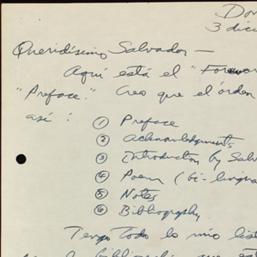 Dom
3 dici
Queridísimo Salvador —
Aquí está el "Forewor
"Preface". Creo que el órden
así :
① Preface
② Acknowledgments
③ Introduction by Salv
④ Poem (bi-lingua
⑤ Notes
⑥ Bibliography
Tengo todo lo mío list